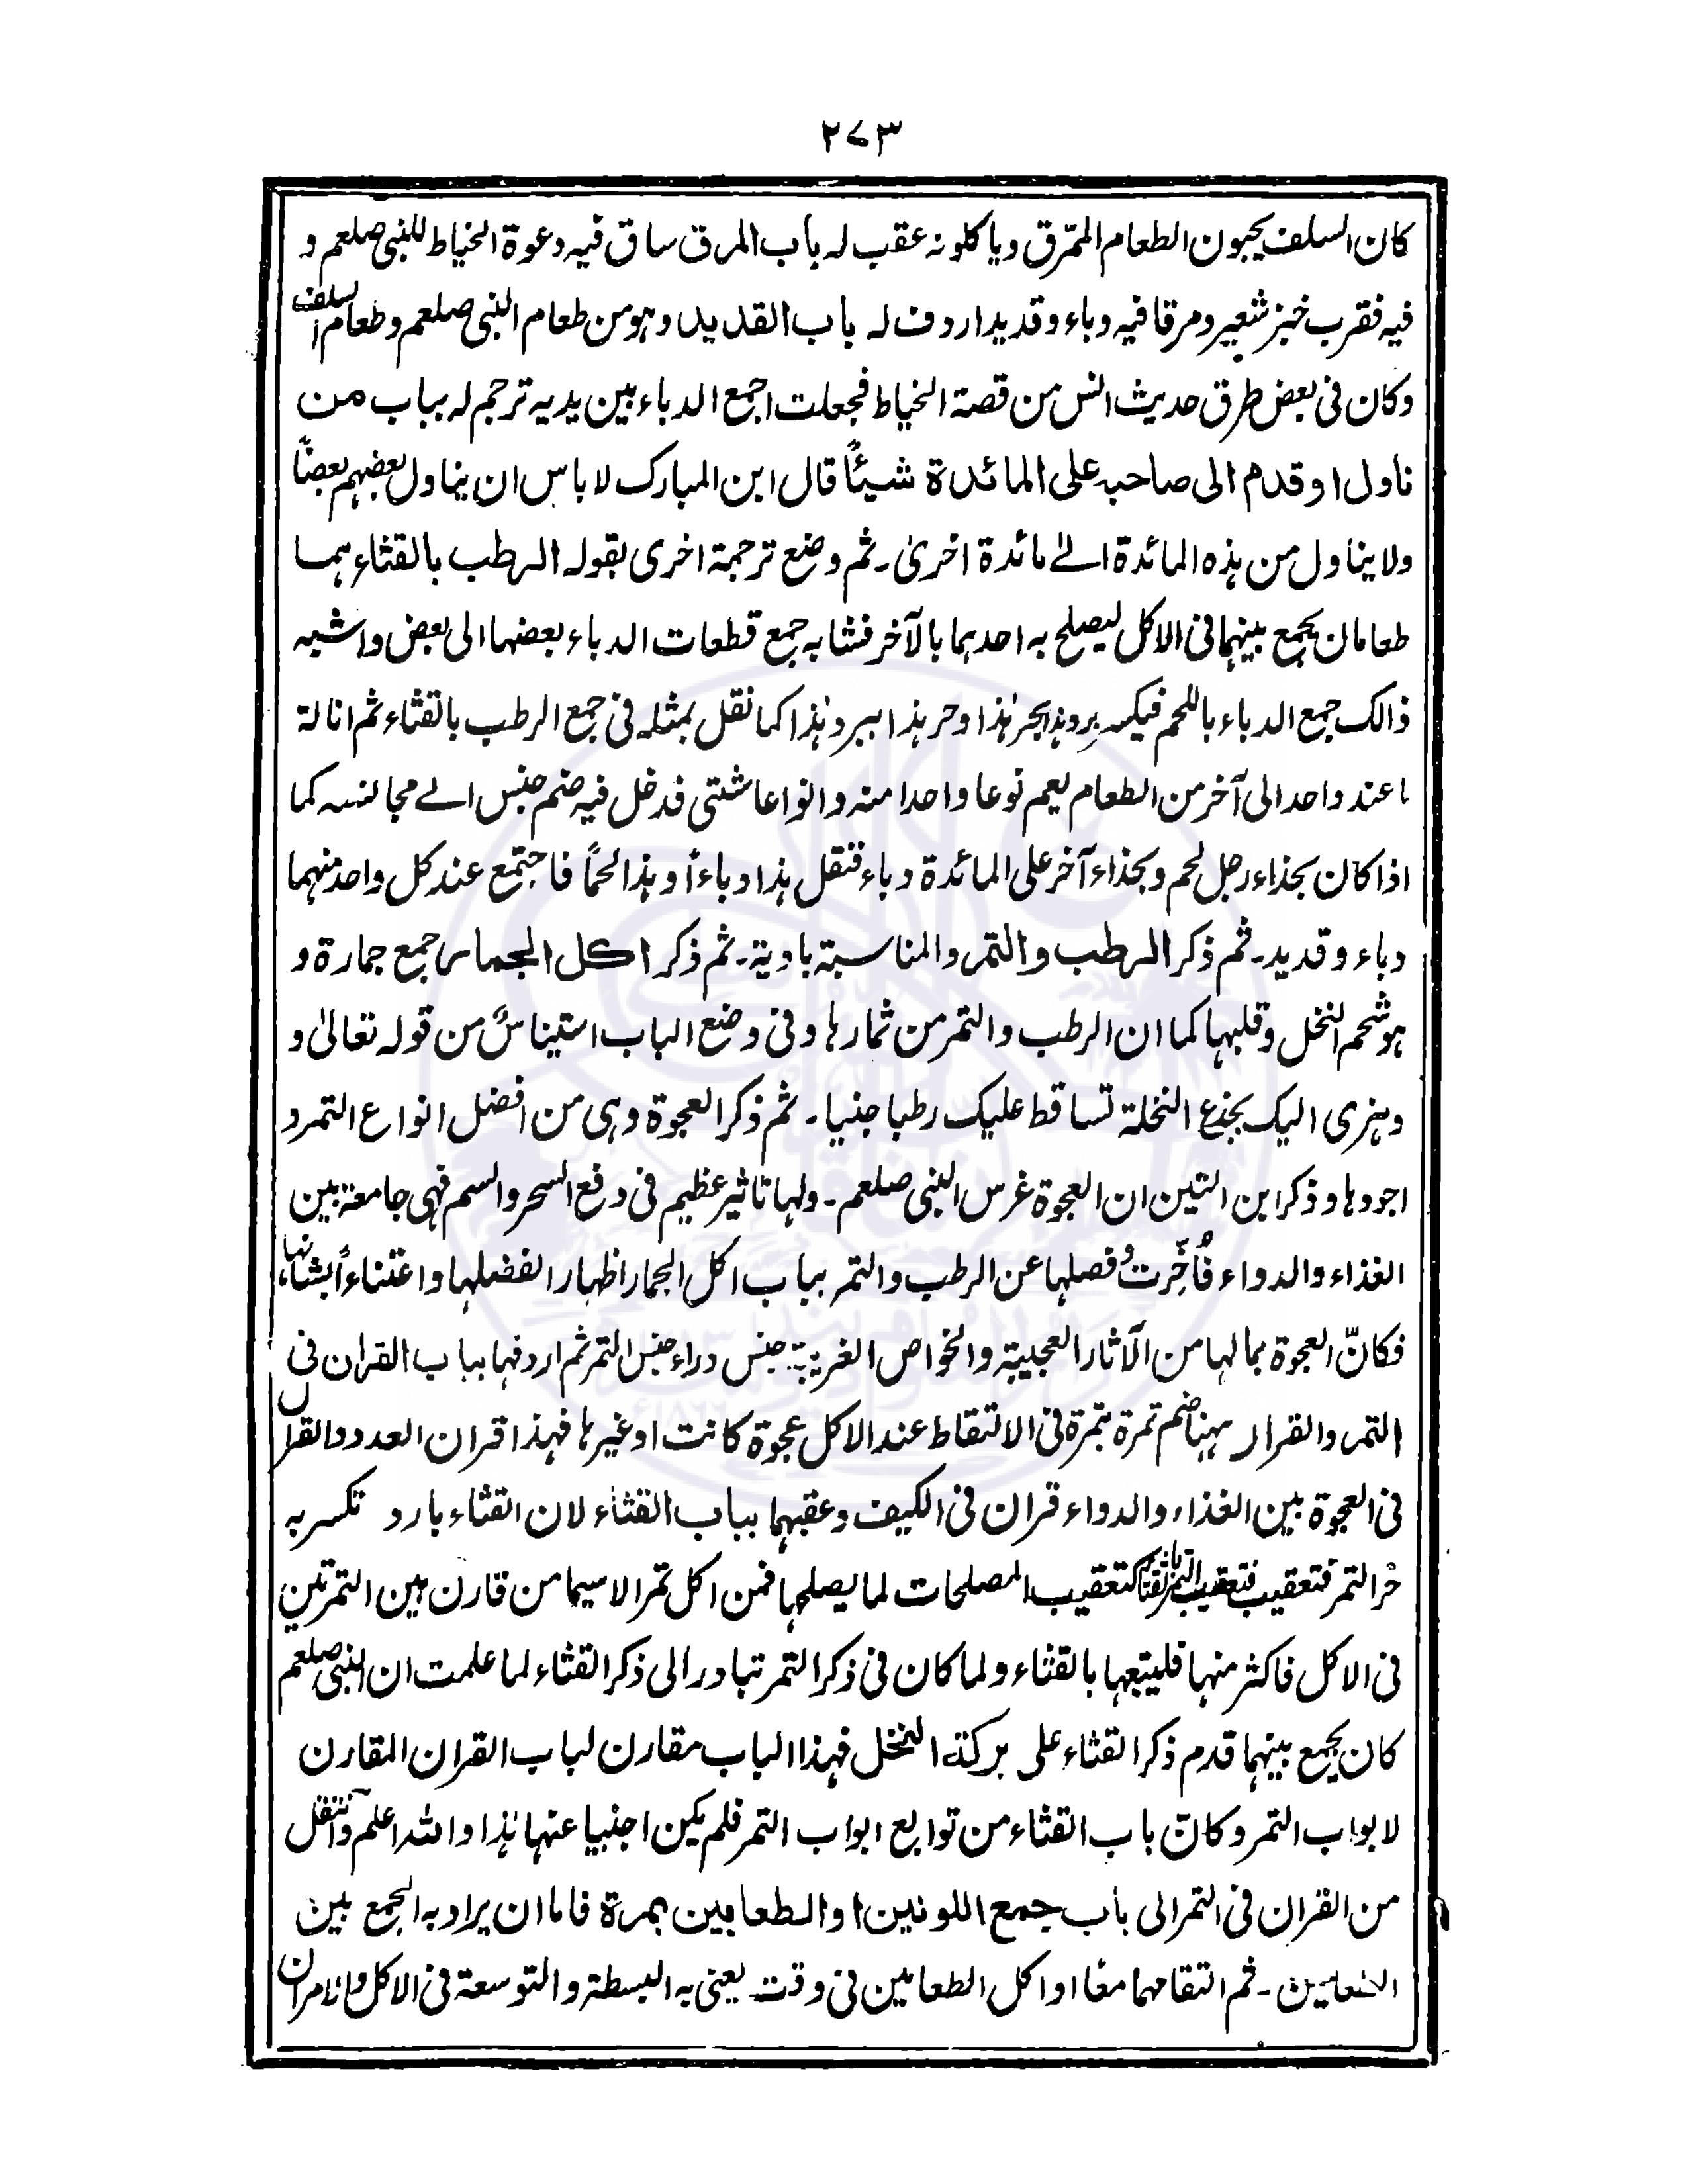 ٢٧٣
كان السلف يحبون الطعام الممرّق وياكلونه عقب له باب المرق ساق فيه دعوة الخياط للنبى صلعم و
فيه فقرب خبز شعير ومرقا فيه دباء وقديد اردف له باب القديد وهو من طعام النبى صلعم وطعام السلف
وكان فى بعض طرق حديث انس من قصة الخياط فجعلت اجمع الدباء بين يديه ترجم له بباب من
ناول او قدم الى صاحبه على المائدة شيئًا قال ابن المبارك لا باس ان يناول بعضهم بعضًا
ولا يناول من هذه المائدة الے مائدة اخرىٰ ۔ ثم وضع ترجمة اخرى بقوله الرطب بالقثاء هما
طعامان يجمع بينهما فى الاكل ليصلح به احدهما بالآخر فشابه جمع قطعات الدباء بعضها الى بعض واشبه
ذالك جمع الدباء باللحم فيكسر برد هذا بحر هٰذا وحر هذا ببرد هٰذا كما نقل بمثله فى جمع الرطب بالقثاء ثم انالة
ما عند واحد الى آخر من الطعام يعم نوعا واحدا منه وانواعا شتى فدخل فيه ضم جنس الے مجانسه كما
اذا كان بحذاء رجل لحم وبحذاء آخر على المائدة دباء فنقل هذا دباءً و هذا لحمًا فاجتمع عند كل واحد منهما
دباء وقديد۔ ثم ذكر الرطب والتمر والمناسبة بادية۔ ثم ذكر اكل الجمار جمع جمارة و
هو شحم النخل وقلبها كما ان الرطب والتمر من ثمارها وفى وضع الباب استيناسٌ من قوله تعالىٰ و
وهزى اليك بجذع النخلة تساقط عليك رطبا جنيا ۔ ثم ذكر العجوة وهى من افضل انواع التمر و
اجودها وذكر ابن التين ان العجوة غرس النبى صلعم ۔ ولها تاثير عظيم فى دفع السحر والسم فهى جامعة بين
الغذاء والدواء فأُخّرت وفصلها عن الرطب والتمر بباب اكل الجمار اظهارا لفضلها واعتناءً بشانها
فكانّ العجوة بما لها من الآثار العجيبة والخواص الغريبة جنس وراء جنس التمر ثم اردفها بباب القران فى
التمر والقران ههنا ضم تمرة بتمرة فى الالتقاط عند الاكل عجوة كانت او غيرها فهذا قران العدد والقران
فى العجوة بين الغذاء والدواء قران فى الكيف وعقبهما بباب القثاء لان القثاء بارد تكسر به
حرّ التمر فتعقيب التمر بالقثاء كتعقيب المصلحات لما يصلحها فمن اكل تمرا لاسيما من قارن بين التمرتين
فى الاكل فاكثر منها فليتبعها بالقثاء ولما كان فى ذكر التمر تبادر الى ذكر القثاء لما علمت ان النبى صلعم
كان يجمع بينهما قدم ذكر القثاء على بركة النخل فهذا الباب مقارن لباب القران المقارن
لابواب التمر وكانّ باب القثاء من توابع ابواب التمر فلم يكن اجنبيا عنها هٰذا والله اعلم وانتقل
من القران فى التمر الى باب جمع اللونين او الطعامين بمرة فاما ان يراد به الجمع بين
الطعامين ۔ ثم التقامهما معًا او اكل الطعامين فى وقت يعنى به البسطة والتوسعة فى الاكل والامران